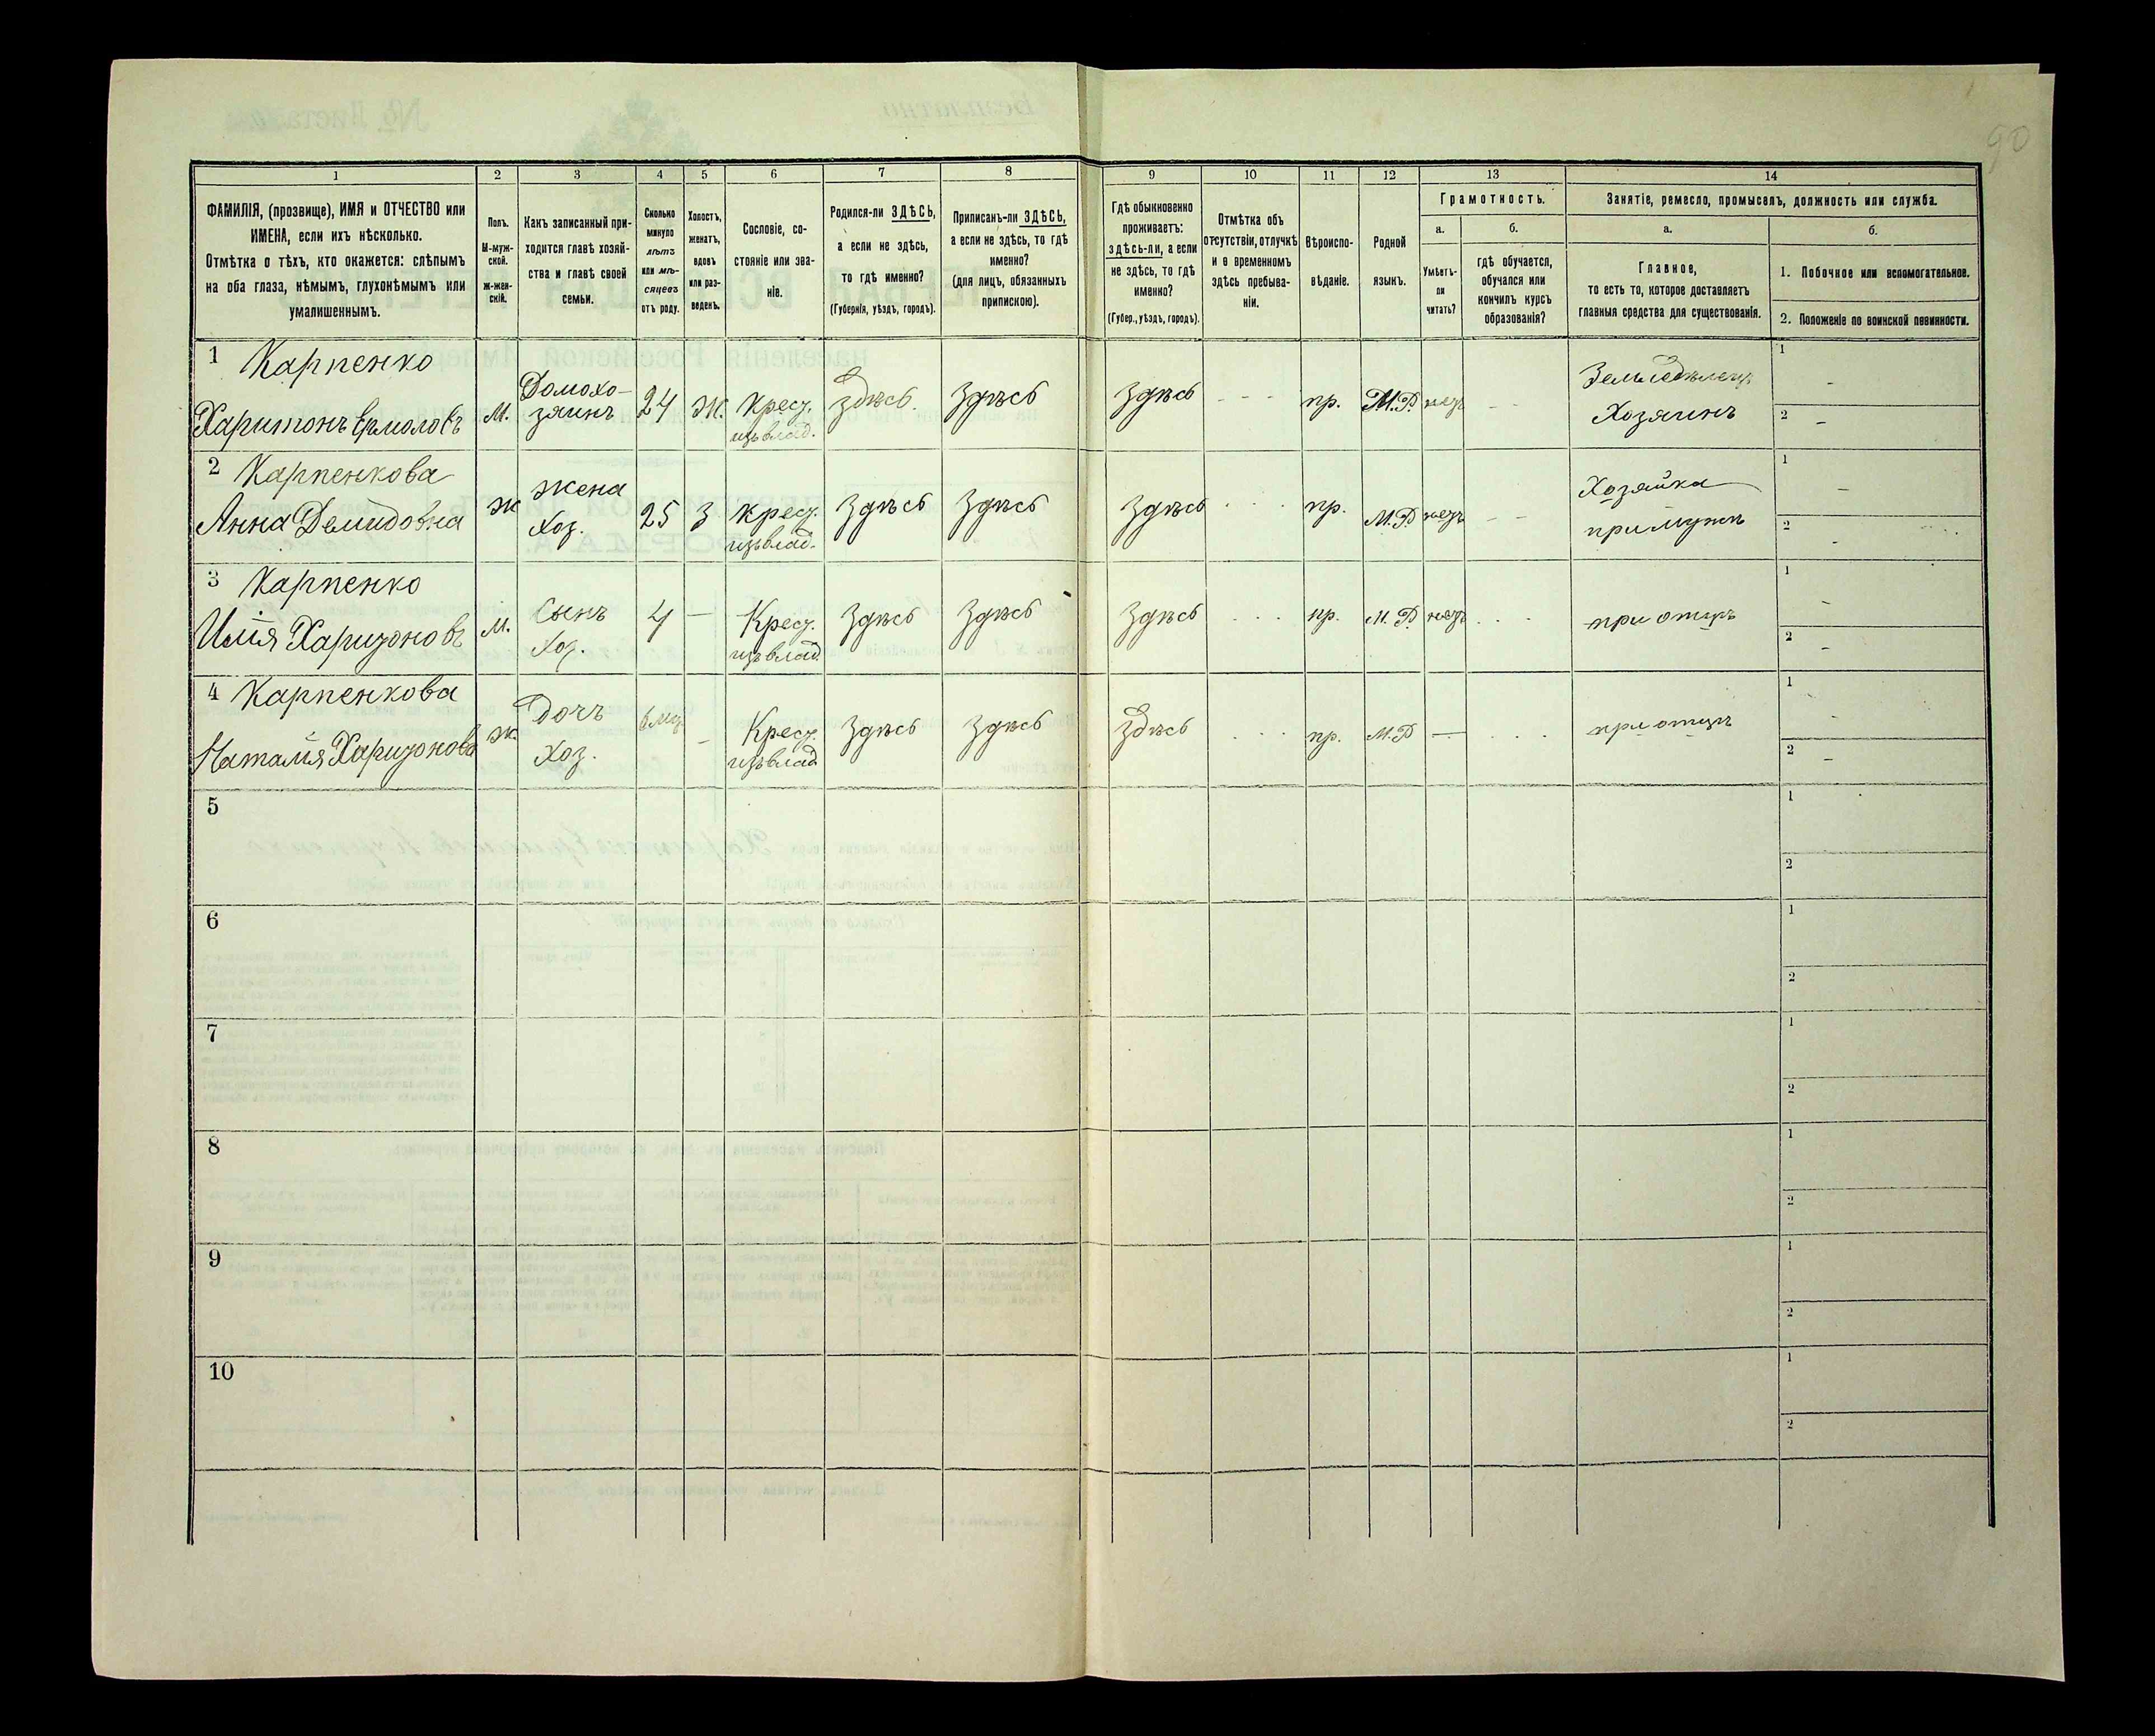 90
1 2 3 4 5 6 7 8 9 10 11 12 13 14
ФАМИЛІЯ, (прозвище), ИМЯ и ОТЧЕСТВО или
ИМЕНА, если ихъ нѣсколько.
Отмѣтка о тѣхъ, кто окажется: слѣпымъ
на оба глаза, нѣмымъ, глухонѣмымъ или
умалишеннымъ.
Полъ.
М-муж-
ской.
Ж-жен-
скій.
Какъ записанный при-
ходится главѣ хозяй-
ства и главѣ своей
семьи.
Сколько
минуло
лѣтъ
или мѣ-
сяцевъ
отъ роду.
Холостъ,
женатъ,
вдовъ
или раз-
веденъ.
Сословіе, со-
стояніе или зва-
ніе.
Родился-ли ЗДѢСЬ,
а если не здѣсь,
то гдѣ именно?
(Губернія, уѣздъ, городъ).
Приписанъ-ли ЗДѢСЬ,
а если не здѣсь, то гдѣ
именно?
(для лицъ, обязанныхъ
припискою).
Гдѣ обыкновенно
проживаетъ:
здѣсь-ли, а если
не здѣсь, то гдѣ
именно?
(Губер., уѣздъ, городъ).
Отмѣтка объ
отсутствіи, отлучкѣ
и о временномъ
здѣсь пребыва-
ніи.
Вѣроиспо-
вѣданіе.
Родной
языкъ.
Грамотность.
а.
Умѣетъ-
ли
читать?
б.
гдѣ обучается,
обучался или
кончилъ курсъ
образованія?
Занятіе, ремесло, промыселъ, должность или служба.
а.
Главное,
то есть то, которое доставляетъ
главныя средства для существованія.
б.
1. Побочное или вспомогательное.
2. Положеніе по воинской повинности.
1 Карпенко
Харитонъ Ермоловъ
М.
Домохо-
зяинъ
24
Ж.
Крест.
изъ влад.
здѣсь
Здѣсь
Здѣсь
- - -
пр.
М.Р.
нетъ
- -
Земледѣлецъ
Хозяинъ
1 -
2 -
2 Карпенкова
Анна Демидовна
Ж
Жена
Хоз.
25
З
Крест.
изъ влад.
Здѣсь
Здѣсь
Здѣсь
. . .
пр.
М.Р
нетъ
- -
Хозяйка
при мужѣ
1 -
2 -
3 Карпенко
Илія Харитоновъ
М.
Сынъ
Хоз.
4
-
Крест.
изъ влад.
Здѣсь
Здѣсь
Здѣсь
. . .
пр.
М.Р
нетъ
. . .
при отцѣ
1 -
2 -
4 Карпенкова
Наталія Харитонова
Ж.
Дочъ
Хоз.
6 мц.
-
Крест.
изъ влад
Здѣсь
Здѣсь
здѣсь
. . .
пр.
М.Р
—
. . .
при отцѣ
1 -
2 -
5
1
2
6
1
2
7
1
2
8
1
2
9
1
2
10
1
2